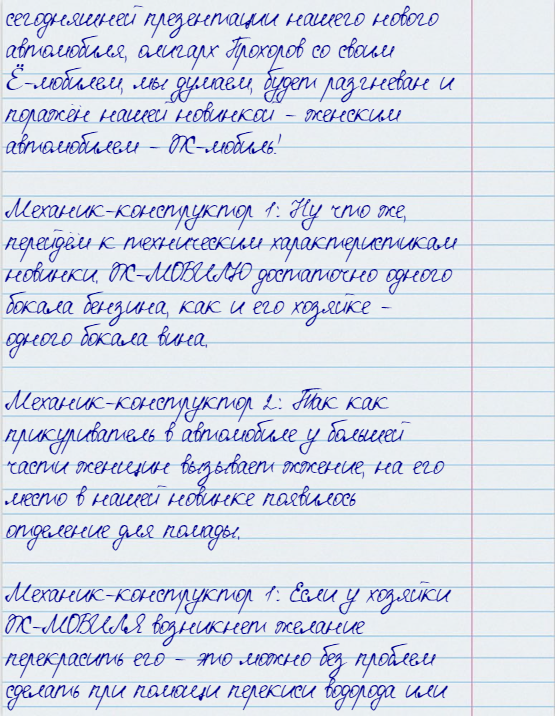 сегодняшней презентации нашего нового
автомобиля, олигарх Прохоров со своим
Ё-мобилем, мы думаем, будет разгневан и
поражён нашей новинкой - женским
автомобилем - Ж-мобиль!
Механик-конструктор 1: Ну что же,
перейдём к техническим характеристикам
новинки. Ж-МОБИЛЮ достаточно одного
бокала бензина, как и его хозяйке -
одного бокала вина.
Механик-конструктор 2: Так как
прикуриватель в автомобиле у большей
части женщин вызывает жжение, на его
место в нашей новинке появилось
отделение для помады.
Механик-конструктор 1: Если у хозяйки
Ж-МОБИЛЯ возникнет желание
перекрасить его - это можно без проблем
сделать при помощи перекиси водорода или